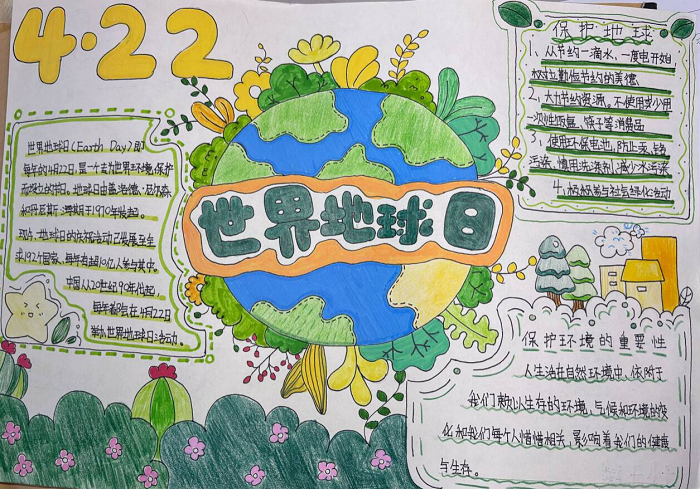 4·22
世界地球日
世界地球日(Earth Day)即
每年的4月22日,是一个专为世界环境保护
而设立的节日。地球日由盖洛德·尼尔森
和丹尼斯·海斯于1970年发起。
现今,地球日的庆祝活动已发展至全
球192个国家,每年有超10亿人参与其中。
中国从20世纪90年代起,
每年都会在4月22日
举办世界地球日活动。
保护地球
1、从节约一滴水、一度电开始,
树立勤俭节约的美德
2、大力节约资源。不使用或少用
一次性饭盒、筷子等消费品
3、使用环保电池,防止汞、镉
污染,慎用洗涤剂,减少水污染
4、积极参与社会绿化活动
保护环境的重要性
人生活在自然环境中,依附于
我们赖以生存的环境,气候和环境的变
化和我们每个人息息相关,影响着我们的健康
与生存。